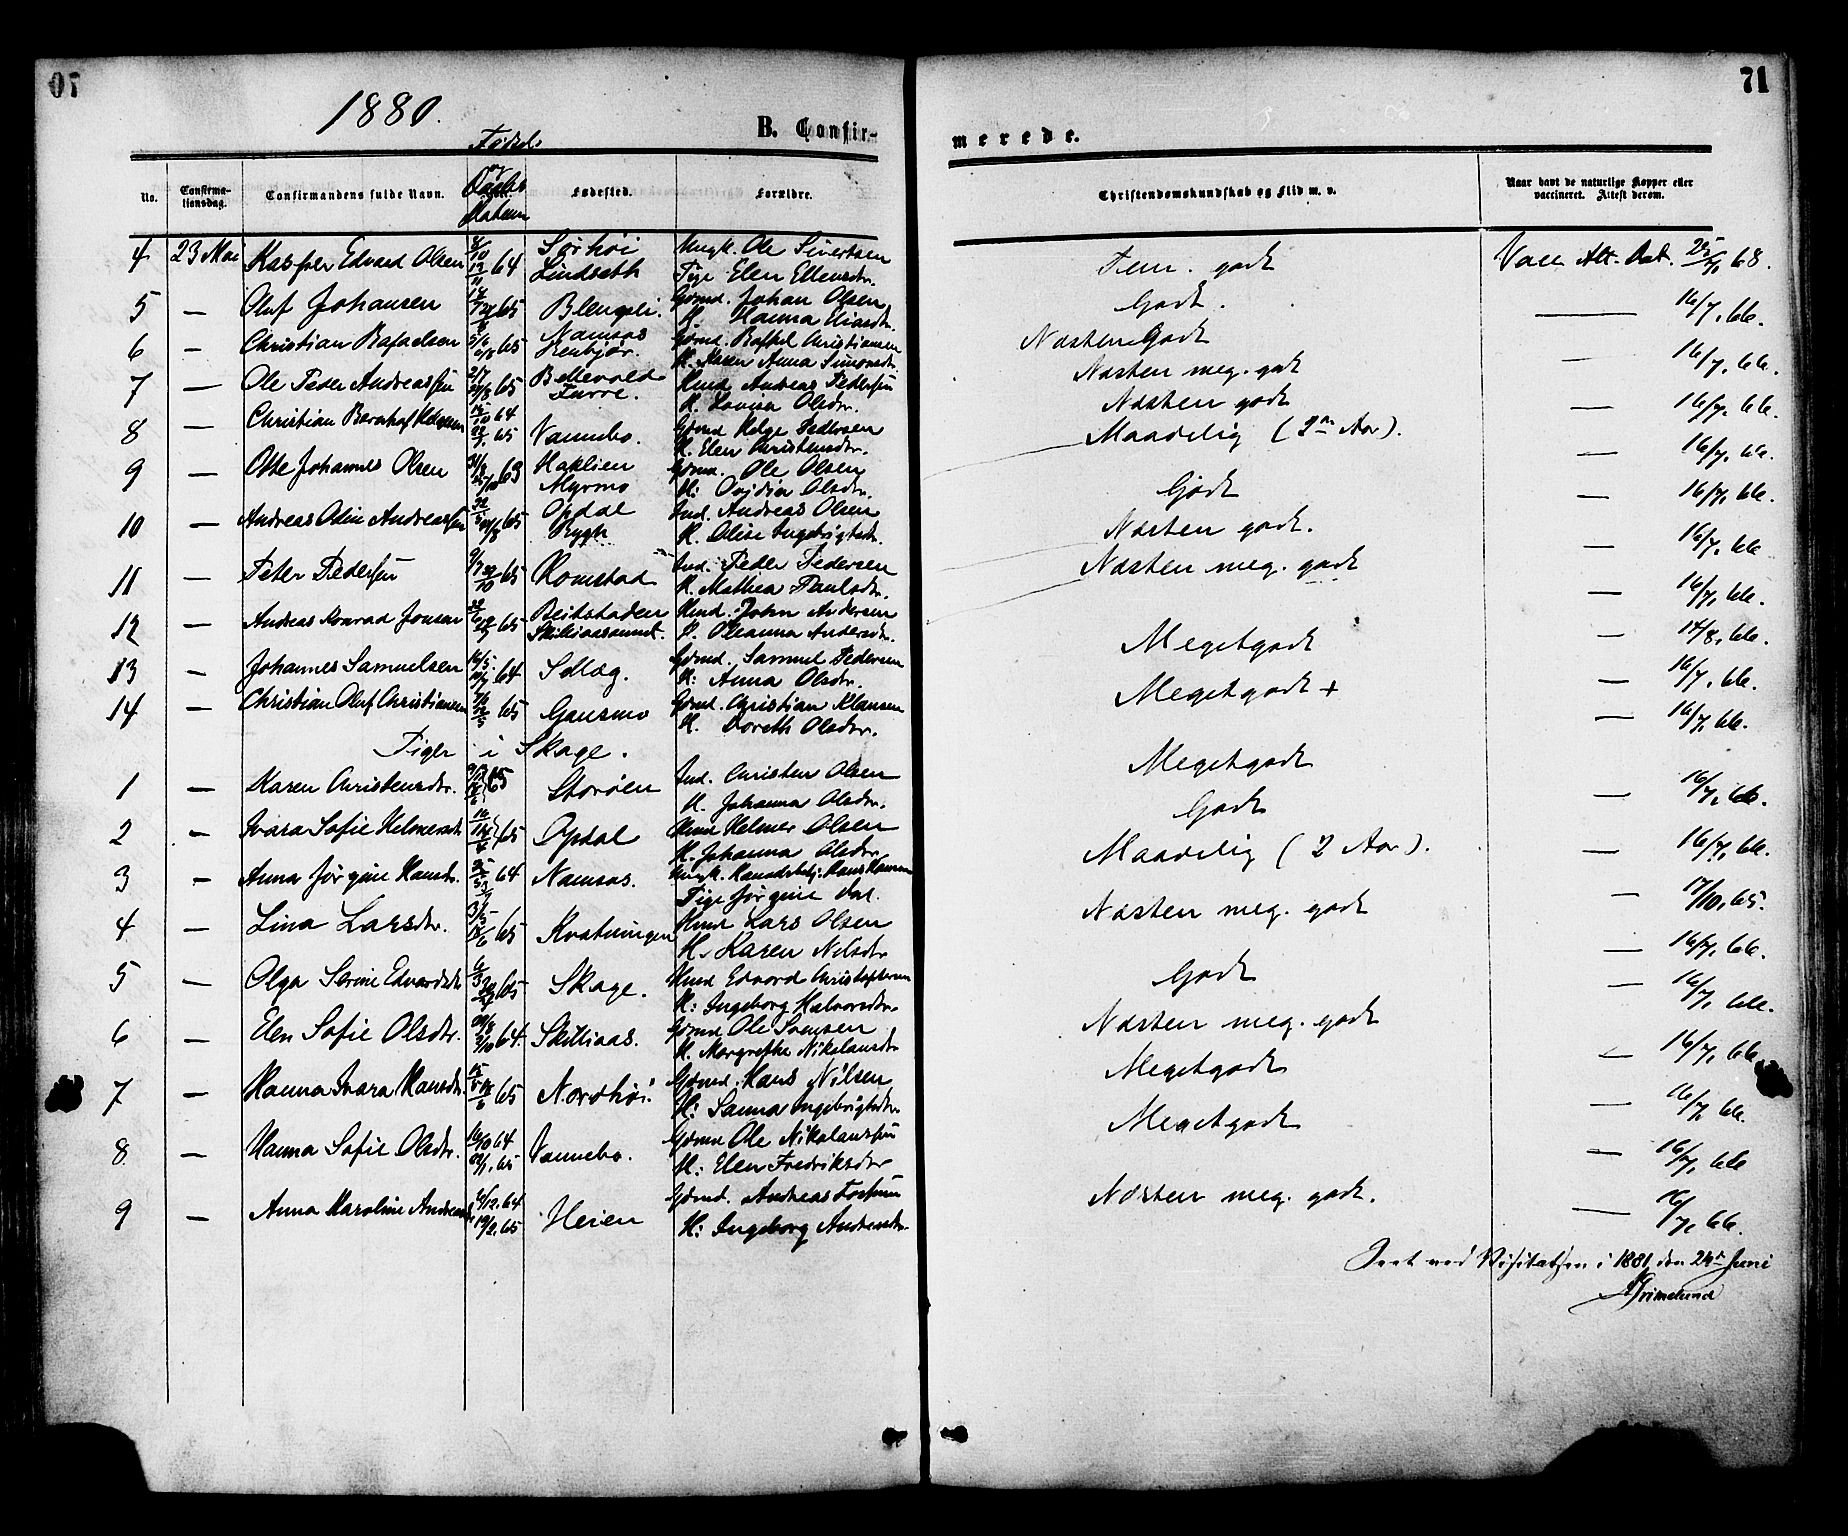 07
71
1880.
B. Confir-
merede.
Fødsels
og
Daabs
Datum
No.
Confirma-
tionsdag.
Confirmandens fulde Navn.
Fødested.
Forældre.
Christendomskundskab og Flid m. v.
Naar havt de naturlige Kopper eller
vaccineret. Attest derom.
4 23 Mai Kasper Edvard Olsen 64 Sørhøi Lindseth Ungk. Ole Sivertsen Pige Elen Ellensdtr. Tem. godt Vacc. Att. Dat. 68.
5 — Oluf Johansen 65 Blengsli. Gdmd. Johan Olsen K. Hanna Eliasdtr. Godt. — 16/7. 66.
6 — Christian Rafaelsen 65 Namsos Gdmd. Rafael Christiansen K. Karen Anna Simonsdtr. Næsten Godt — 16/7. 66.
7 — Ole Peder Andreassen 65 Bettevold Furre. Hmd Andreas Pedersen K. Lovisa Olsdtr. Næsten meg. godt — 16/7. 66.
8 — Christian Bernhof Helgesen 64 65 Vannebo. Gdmd Helge Pedersen K. Elen Christensdtr. Næsten godt — 16/7. 66.
9 — Otte Johannes Olsen 63 Haklien Myrmo Gdmd. Ole Olsen K: Ovidia Olsdtr. Maadelig (2 Aar). — 16/7. 66.
10 — Andreas Odin Andreassen 65 Opdal Rygh Ind. Andreas Olsen K. Olise Ingebrigtsdtr. Godt — 16/7. 66.
11 — Peter Pedersen 65 Romstad Ind. Peder Pedersen K. Mathea Paulsdtr. Næsten godt. — 16/7. 66.
12 — Andreas Konrad Jonsen 65 Beitstaden Hmd. John Andersen K. Oleanna Andersdtr. Næsten meg. godt — 14/8. 66.
13 — Johannes Samuelsen 16/5. 64 Selag. Gdmd. Samuel Pedersen K: Anna Olsdtr. Megetgodt — 16/7. 66.
14 — Christian Oluf Christiansen 65 Gansmo Gdmd. Christian Klausen K. Doreth Olsdtr. Megetgodt + — 16/7. 66.
Piger i Skage.
1 — Karen Christensdtr. 65 Storøen Ind. Christen Olsen K. Johanna Olsdtr. Megetgodt — 16/7. 66.
2 — Ivara Sofie Helmersdtr 65 Opdal Hmd Helmer Olsen K. Johanna Olsdtr. Godt — 16/7. 66.
3 — Anna Jørgine Hansdtr. 64 Namsos. Ungk. Hans Hansen Pige Jørgine Maadelig (2 Aar). — 17/10. 65.
4 — Lina Larsdtr. 65 Kvatningen Hmd Lars Olsen K. Karen Nilsdtr Næsten meg. godt — 16/7. 66.
5 — Olga Serine Edvardsdtr 65 Skage. Hmd Edvard Christophersen K: Ingeborg Halvorsdtr. Godt — 16/7. 66.
6 — Elen Sofie Olsdtr. 64. Skilliaas. Gdmd Ole Svensen K. Margrethe Nikolausdtr Næsten meg. godt — 16/7. 66
7 — Hanna Ivara Hansdtr. 65 Nordhøi Gdmd. Hans Nilsen K: Sanna Ingebrigtsdtr. Megetgodt — 16/7. 66.
8. — Hanna Sofie Olsdtr. 16/10 64 65 Vannebo. Gdmd Ole Nikolaussen K: Elen Fredriksdtr Megetgodt — 16/7. 66
9 — Anna Karoline Andreasdtr. 6/12. 64 19/2. 65 Heien Gdmd. Andreas K: Ingeborg Andersdtr. Næsten meg. godt. — 16/7. 66.
Seet ved Visitatsen i 1881, den 24de Juni
Grimelund